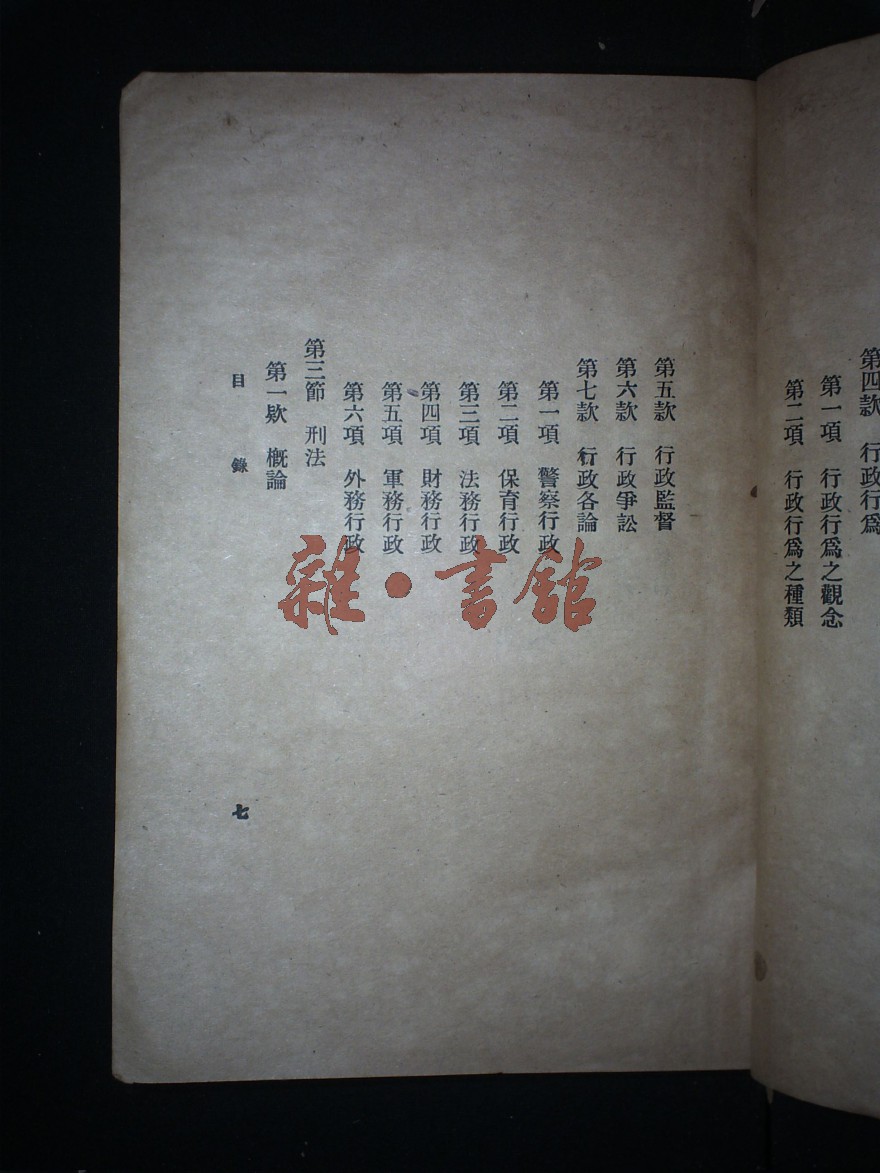 第四款　行政行爲
第一項　行政行爲之觀念
第二項　行政行爲之種類
第五款　行政監督
第六款　行政爭訟
第七款　行政各論
第一項　警察行政
第二項　保育行政
第三項　法務行政
第四項　財務行政
第五項　軍務行政
第六項　外務行政
第三節　刑法
第一欵　概論
目錄
七
雜·書館